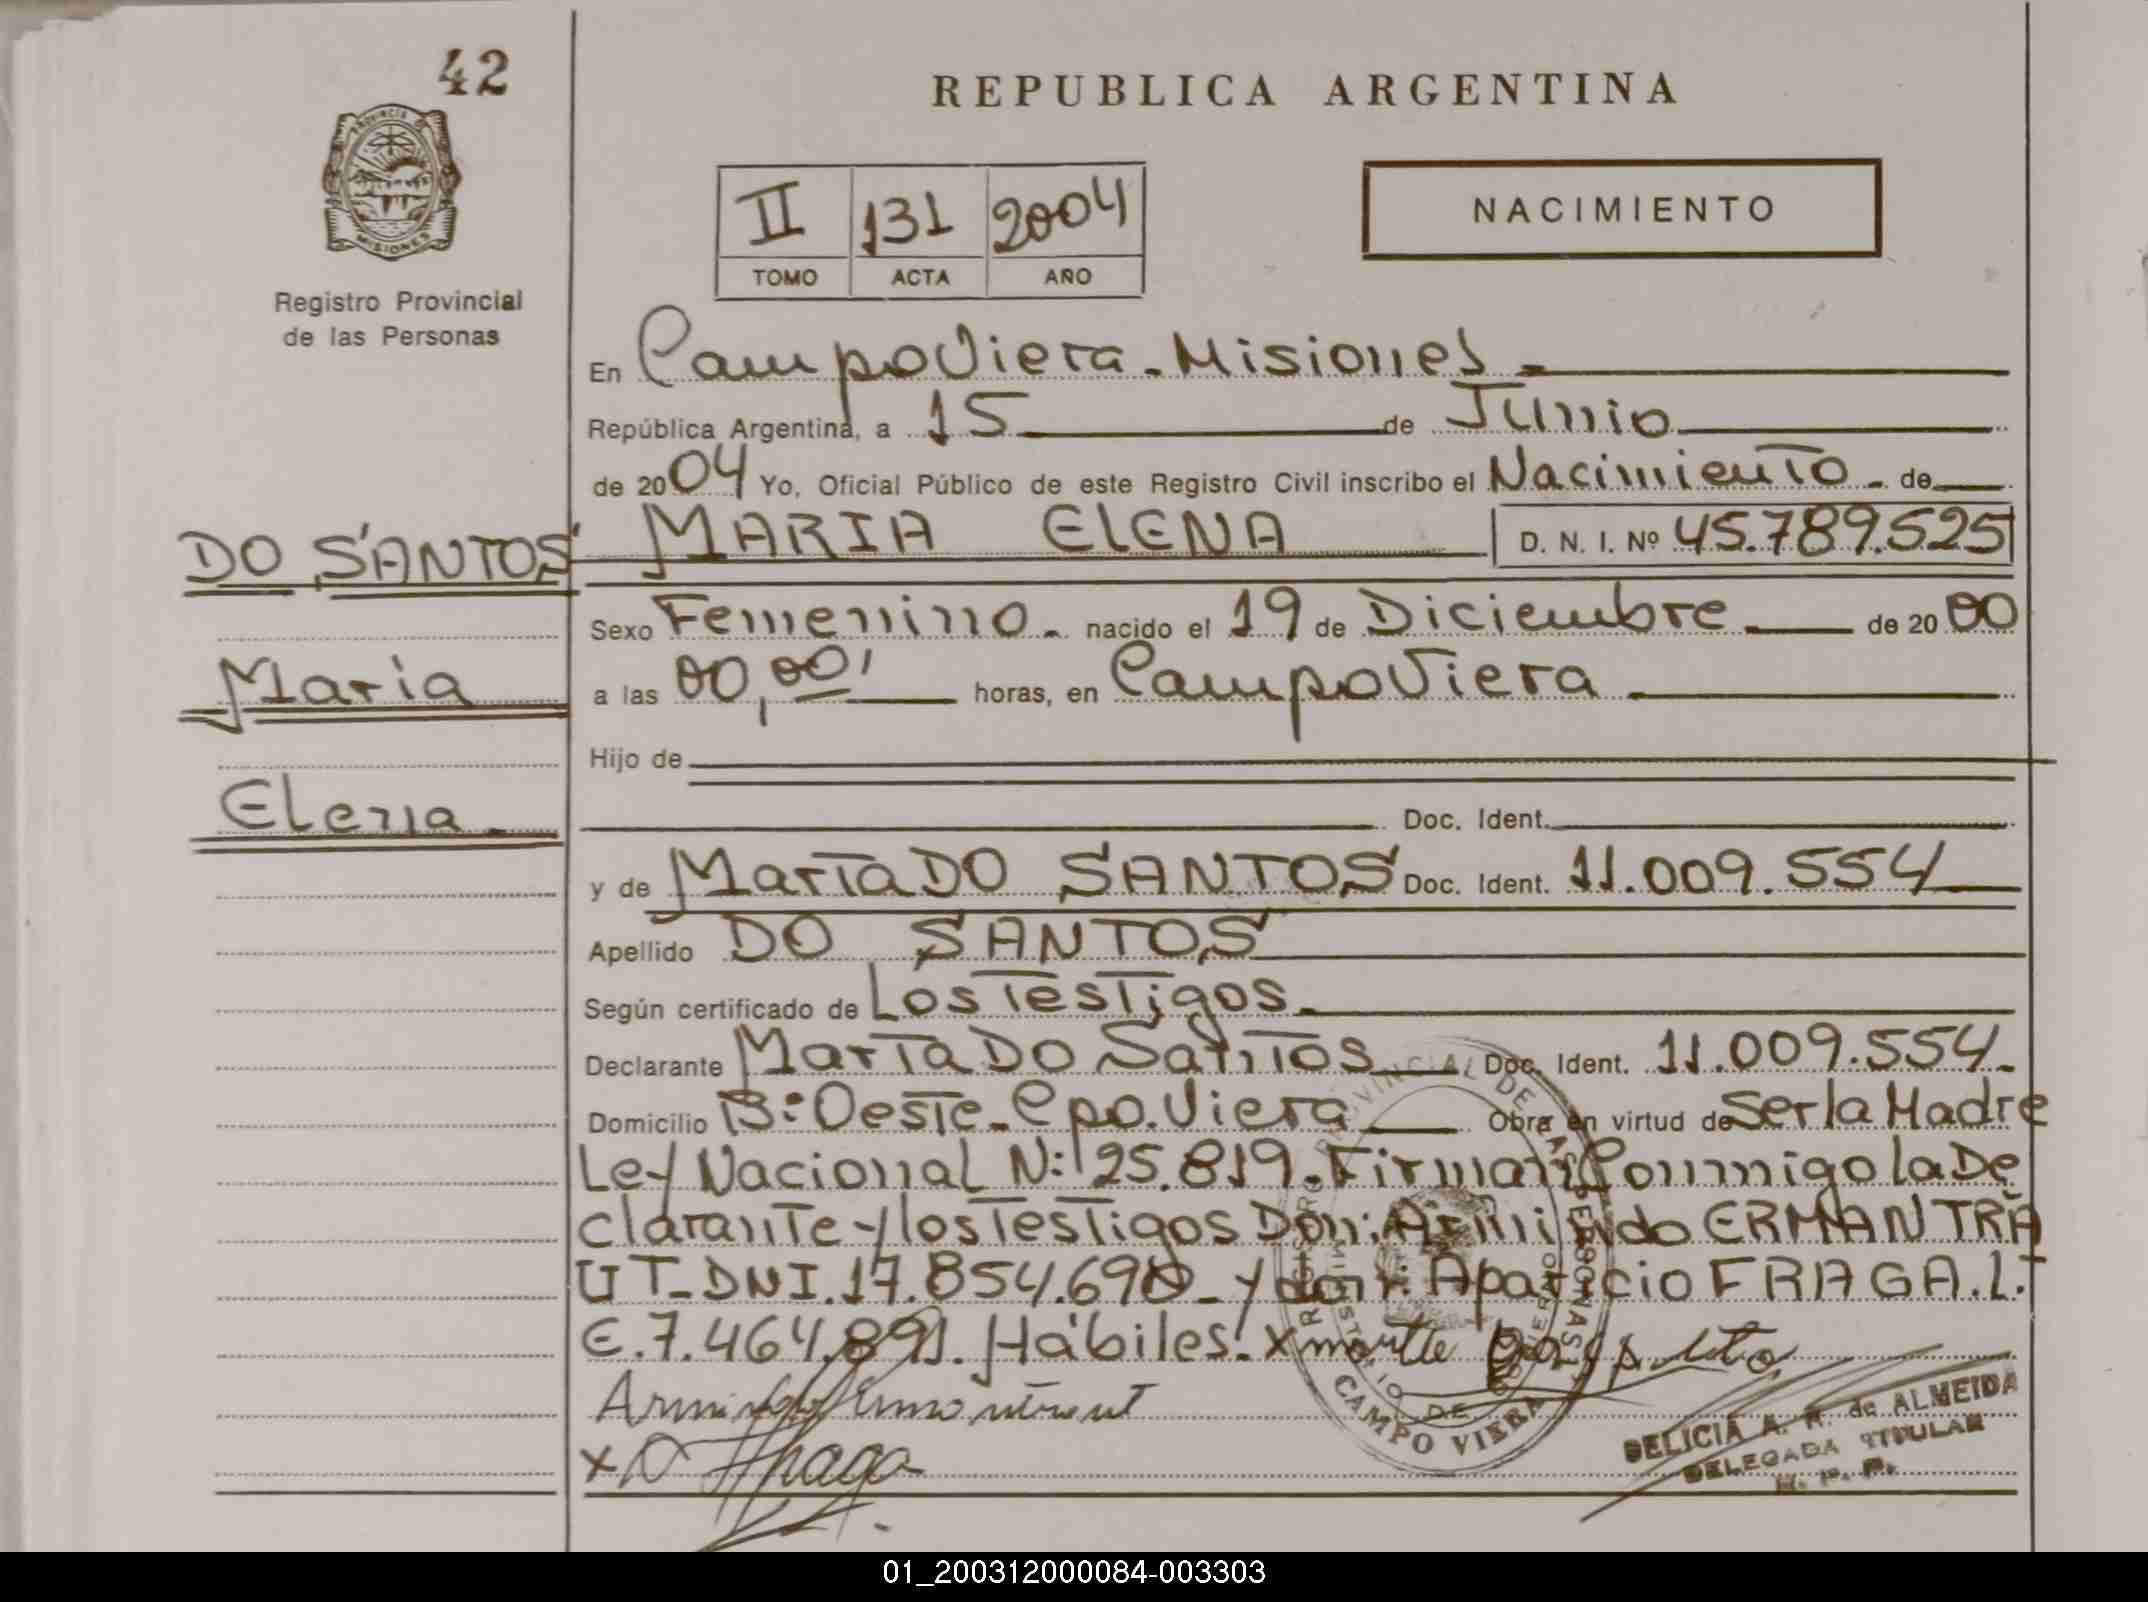 42
PROVINCIA DE
MISIONES
Registro Provincial
de las Personas
REPUBLICA ARGENTINA
II 131 2004
TOMO ACTA AÑO
NACIMIENTO
En Campo Viera - Misiones -
República Argentina, a 15 de Junio
de 2004 Yo, Oficial Público de este Registro Civil inscribo el Nacimiento - de
DO SANTOS MARIA ELENA D. N. I. Nº 45.789.525
Sexo Femenino - nacido el 19 de Diciembre de 2000
Maria
a las 00,00' horas, en Campo Viera
Hijo de
Elena -
Doc. Ident.
y de Marta DO SANTOS Doc. Ident. 11.009.554
Apellido DO SANTOS
Según certificado de Los Testigos
Declarante Marta DO Santos Doc. Ident. 11.009.554.
Domicilio B: Oeste - Cpo. Viera Obra en virtud de Ser la Madre
Ley Nacional N: 25.819. Firman Conmigo la De
clarante y los Testigos Don: Armindo ERMANTRA
UT - DNI. 17.854.690 - y don: Aparicio FRAGA. L.
E. 7.464.891. Hábiles. x
Armindo Ermantraut
x Fraga
REGISTRO PROVINCIAL DE LAS PERSONAS
MINISTERIO DE GOBIERNO
CAMPO VIERA
DELICIA A. R. de ALMEIDA
DELEGADA TITULAR
R. P. P.
01_200312000084-003303